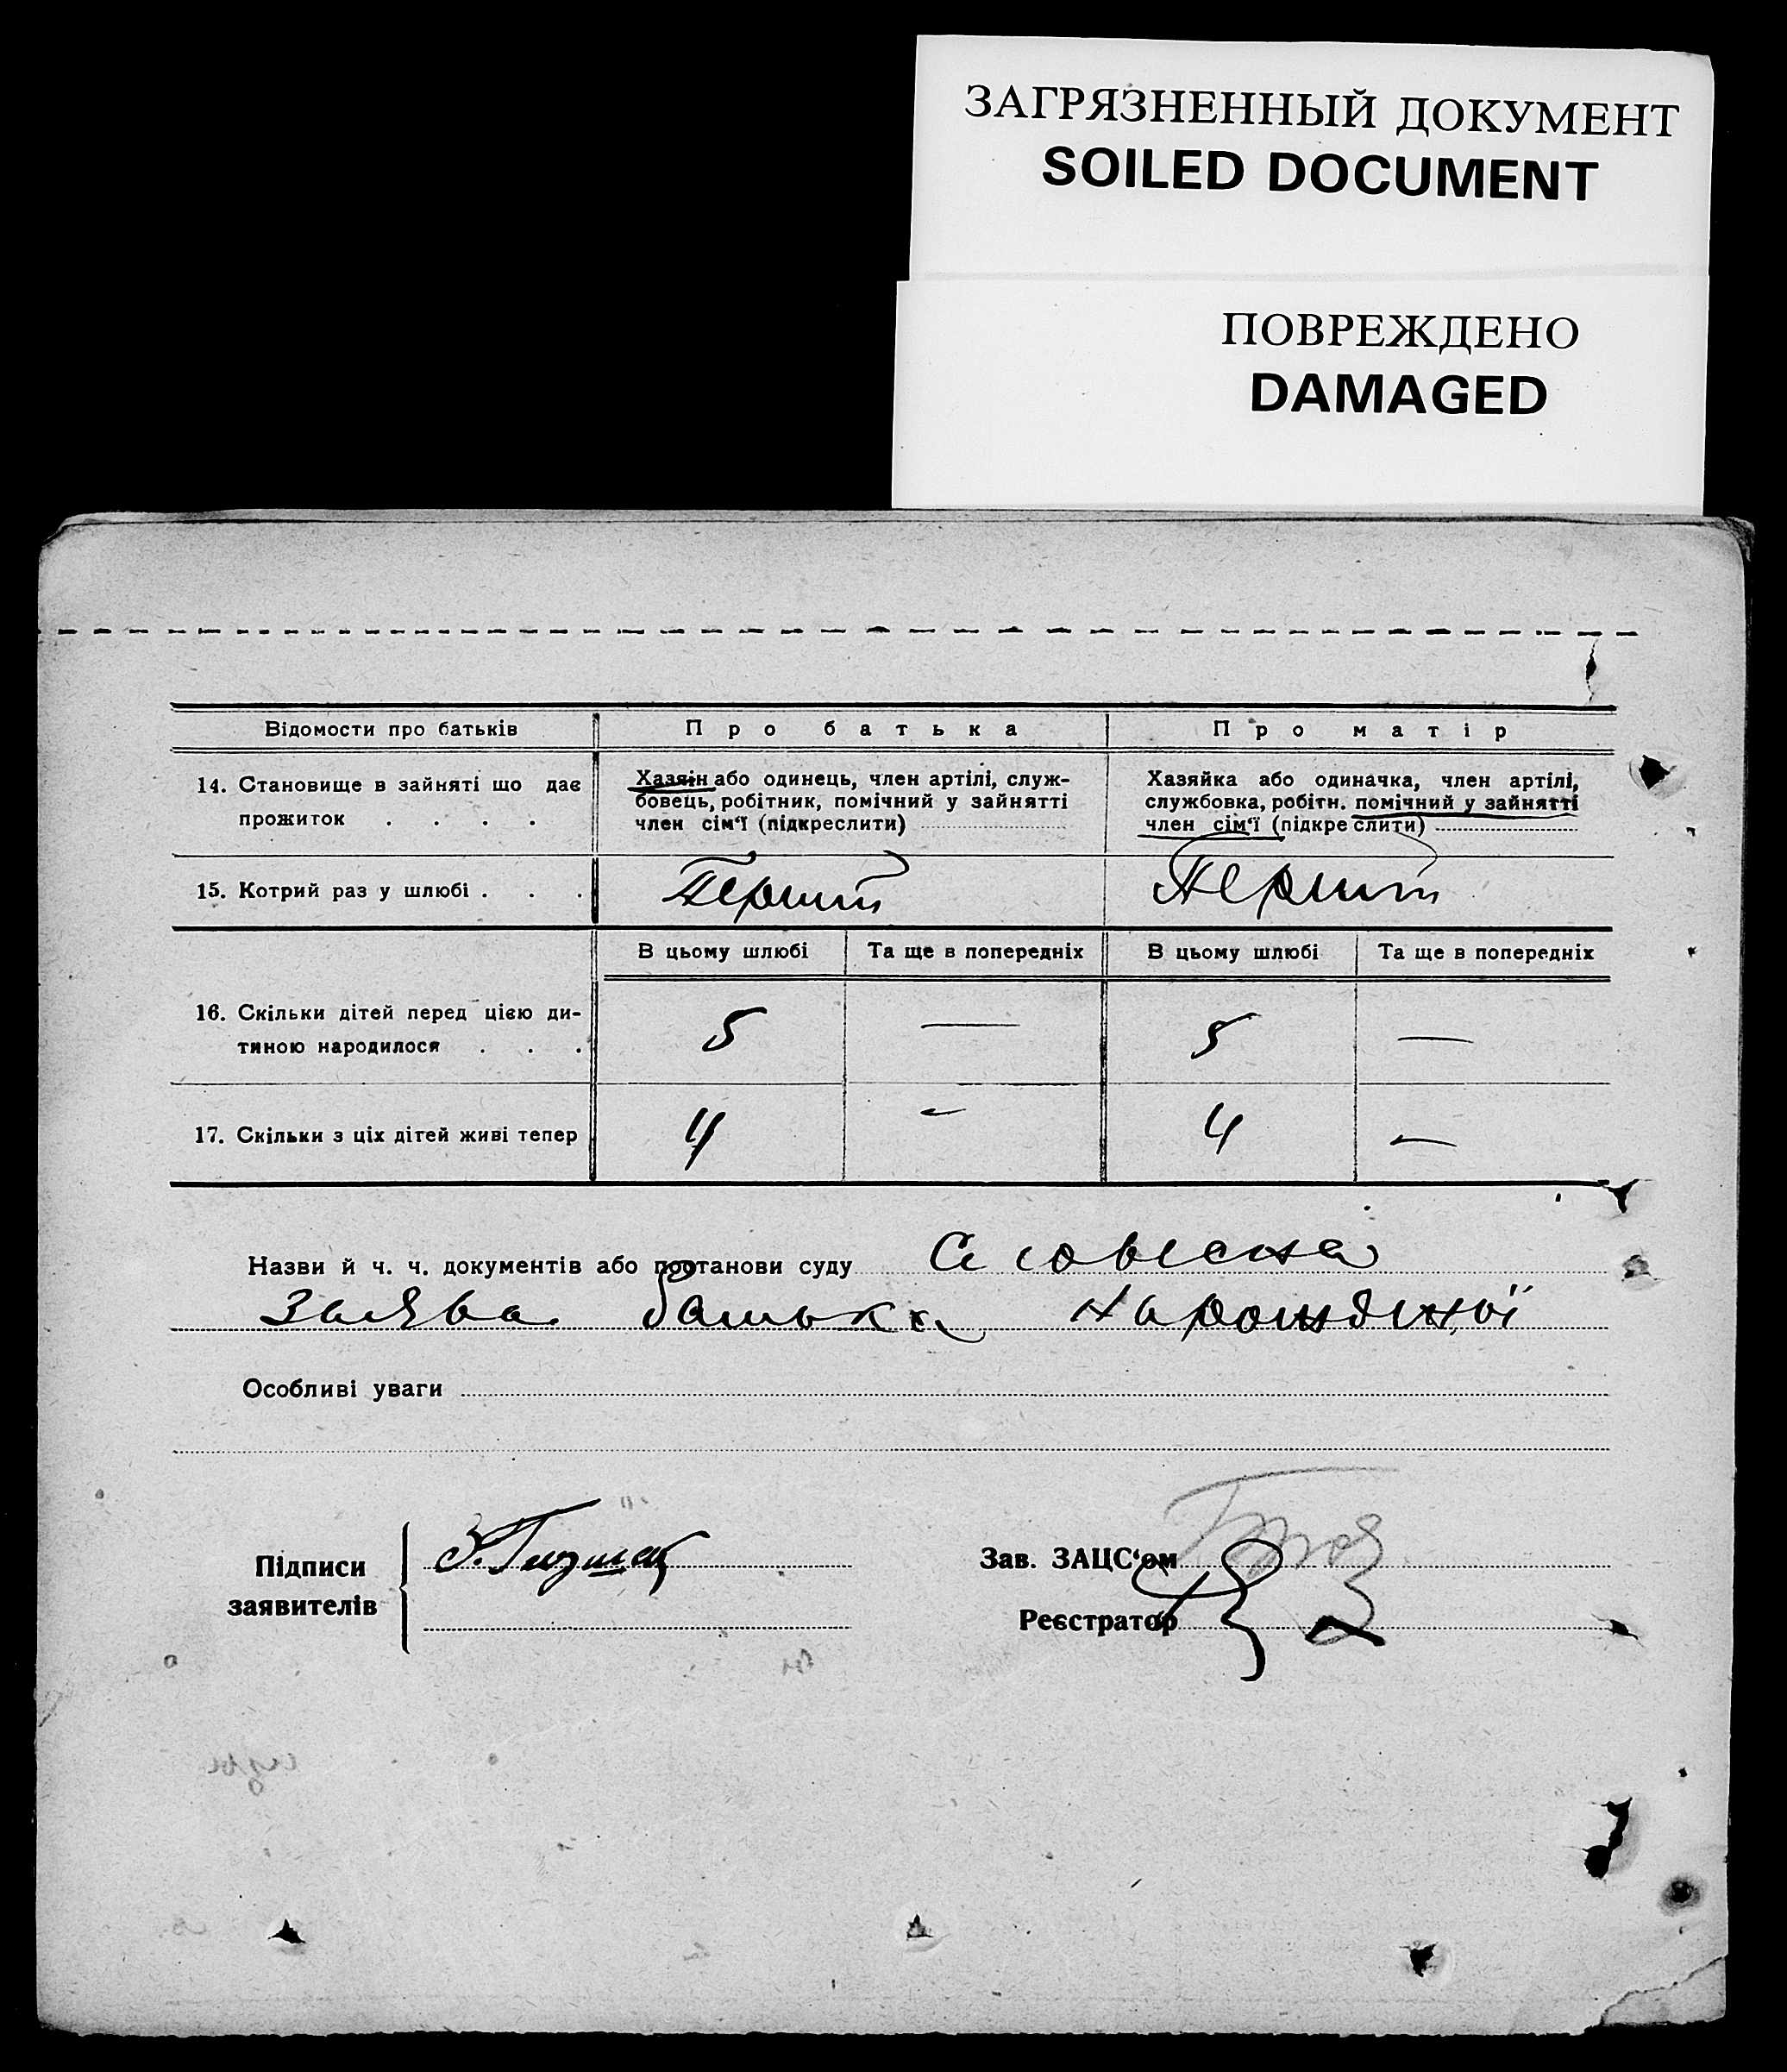 ЗАГРЯЗНЕННЫЙ ДОКУМЕНТ
SOILED DOCUMENT
ПОВРЕЖДЕНО
DAMAGED
Відомости про батьків Про батька Про матір
14. Становище в зайняті що дає
прожиток . . . .
Хазяін або одинець, член артілі, служ-
бовець, робітник, помічний у зайнятті
член сім'ї (підкреслити)
Хазяйка або одиначка, член артілі,
службовка, робітн. помічний у зайнятті
член сім'ї (підкреслити)
15. Котрий раз у шлюбі . . . Перший Перший
В цьому шлюбі Та ще в попередніх В цьому шлюбі Та ще в попередніх
16. Скільки дітей перед цією ди-
тиною народилося . . . 5 — 5 —
17. Скільки з ціх дітей живі тепер 4 - 4 —
Назви й ч. ч. документів або постанови суду Словесна
Заява батька
Особливі уваги
Підписи
заявителів
Зав. ЗАЦС'ом
Реєстратор